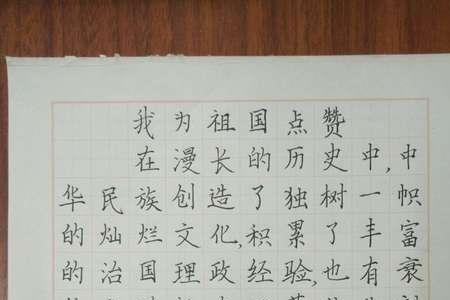 我为祖国点赞
在漫长的历史中,中
华民族创造了独树一帜
的灿烂文化,积累了丰富
的治国理政经验,也有衰